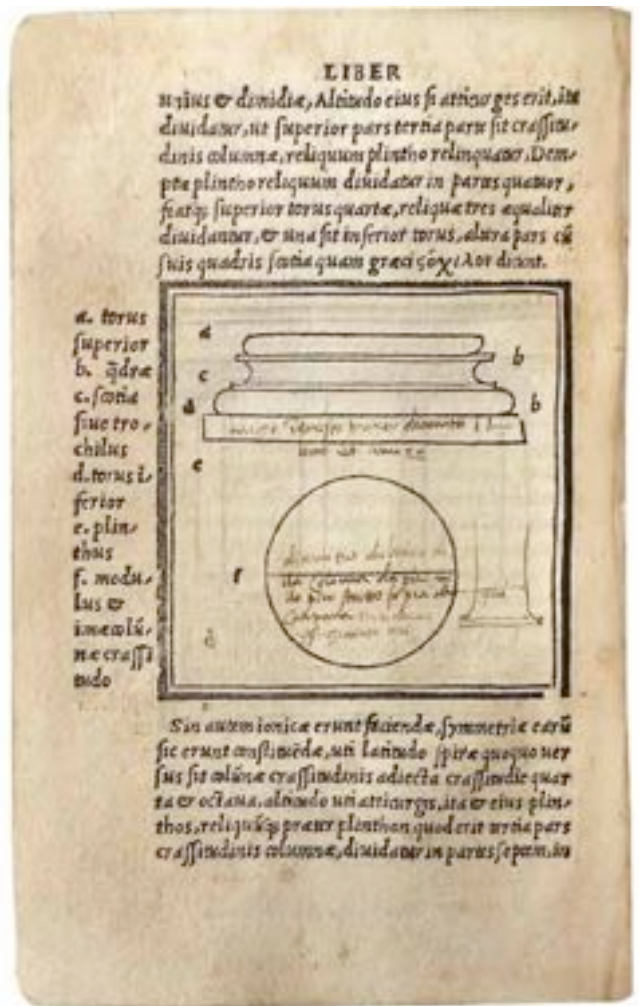 LIBER
unius & dimidiæ, Altitudo eius si atticurges erit, ita
diuidatur, ut superior pars tertia parte sit crassitu-
dinis columnæ, reliquum plintho relinquatur. Dem-
pta plintho reliquum diuidatur in partes quatuor,
fiatq; superior torus quartæ, reliquæ tres æqualiter
diuidantur, & una sit inferior torus, altera pars cũ
suis quadris scotia quam græci dicunt.
a. torus
superior
b. q̃dræ
c. scotia
siue tro-
chilus
d. torus i-
ferior
e. plin-
thus
f. modu-
lus &
imæ colũ-
næ crassi
tudo
a
b
c
d
b
e
f
Sin autem ionicæ erunt faciendæ, symmetriæ earũ
sic erunt constituẽdæ, uti latitudo spiræ quoquo uer
sus sit colũnæ crassitudinis adiecta crassitudie quar
ta & octaua, altitudo uti atticurgis, ita & eius plin-
thos, reliquũq; præter plinthon quod erit tertia pars
crassitudinis columnæ, diuidatur in partes septem, in